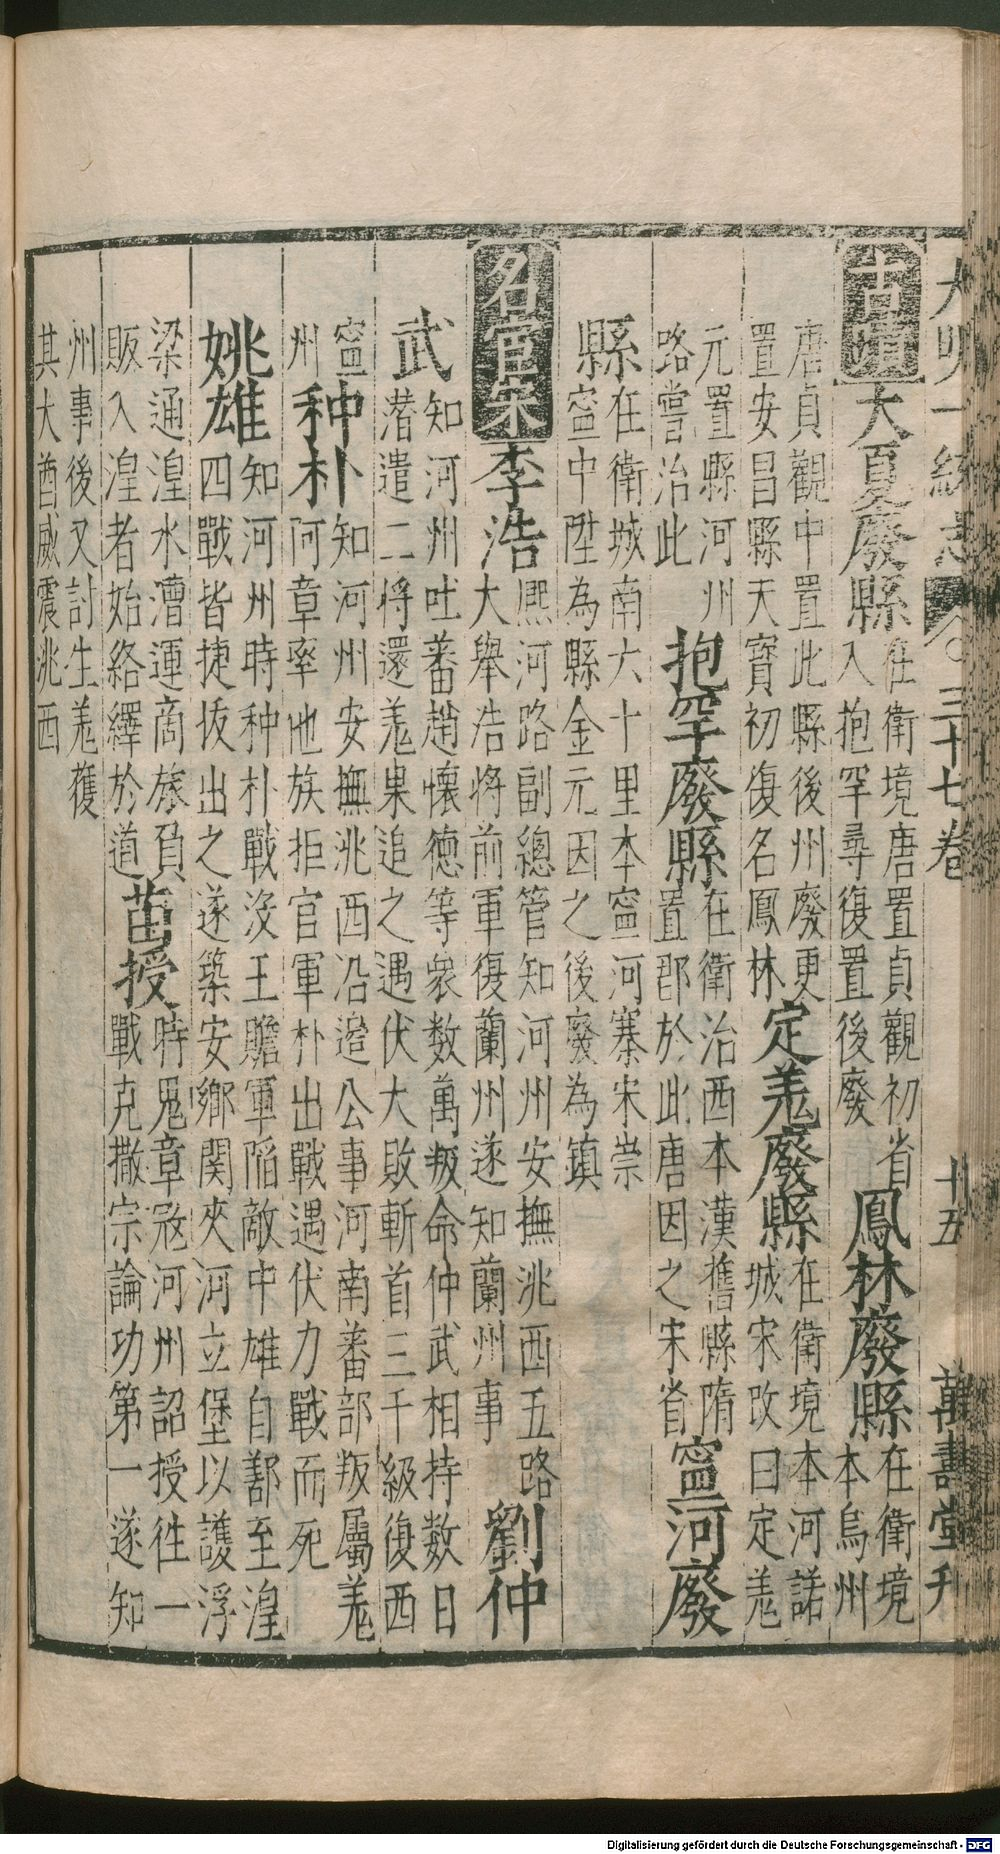 大明一統志 三十七卷 十五 萬壽堂刊
古蹟 大夏廢縣 在衛境唐置貞觀初省
入抱罕尋復置後廢 鳳林廢縣 在衛境
本烏州
唐貞觀中置此縣後州廢更
置安昌縣天寶初復名鳳林 定羗廢縣 在衛境本河諾
城宋改曰定羗
元置縣河州
路嘗治此 抱罕廢縣 在衛治西本漢舊縣隋
置郡於此唐因之宋省 寧河廢
縣 在衛城南六十里本寧河寨宋崇
寧中陞為縣金元因之後廢為鎮
名宦宋 李浩 熈河路副總管知河州安撫洮西五路
大舉浩將前軍復蘭州遂知蘭州事 劉仲
武 知河州吐蕃趙懷德等衆数萬叛命仲武相持数日
潜遣二將還羗果追之遇伏大敗斬首三千級復西
寧
州 种朴 知河州安撫洮西沿邉公事河南蕃部叛屬羗
阿章率他族拒官軍朴出戰遇伏力戰而死
姚雄 知河州時种朴戰没王贍軍陷敵中雄自鄯至湟
四戰皆捷拔出之遂築安鄉関夾河立堡以護浮
梁通湟水漕運商旅負
販入湟者始絡繹於道 苗授 時鬼章寇河州詔授徃一
戰克撒宗論功第一遂知
州事後又討生羗獲
其大酋威震洮西
Digitalisierung gefördert durch die Deutsche Forschungsgemeinschaft - DFG